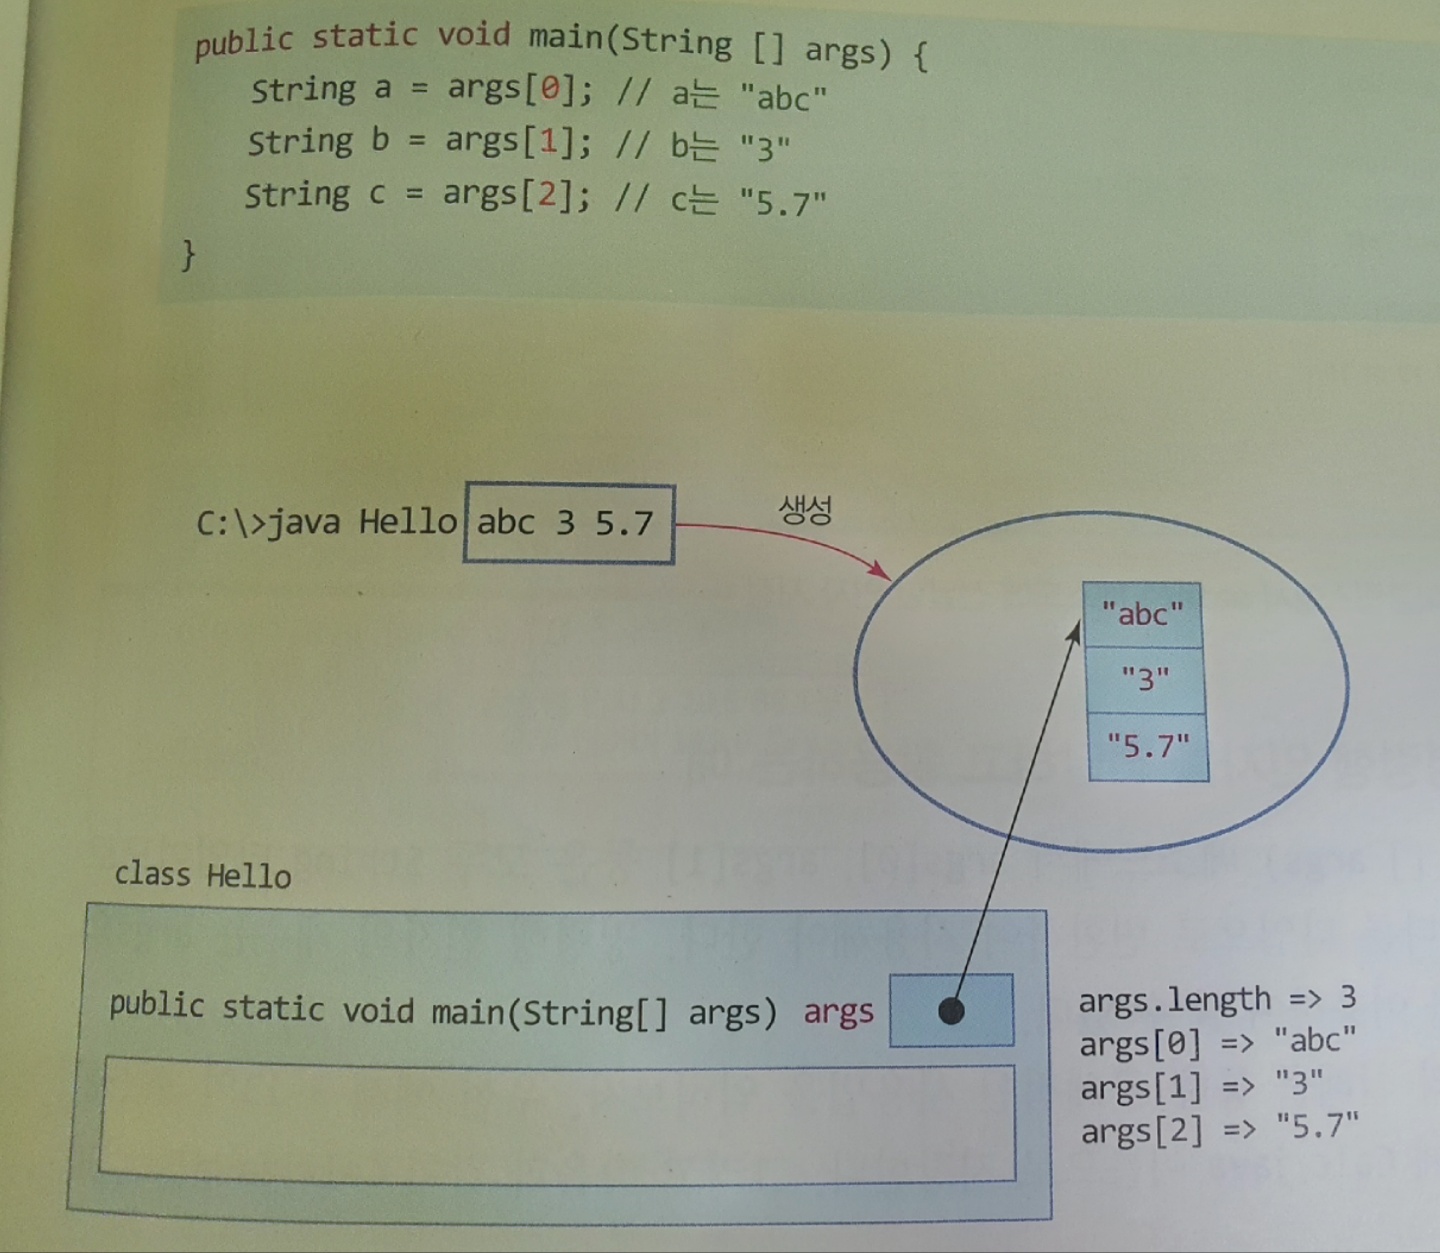 public static void main(String [] args) {
String a = args[0]; // a는 "abc"
String b = args[1]; // b는 "3"
String c = args[2]; // c는 "5.7"
}
C:\>java Hello abc 3 5.7
생성
"abc"
"3"
"5.7"
class Hello
public static void main(String[] args) args
args.length => 3
args[0] => "abc"
args[1] => "3"
args[2] => "5.7"